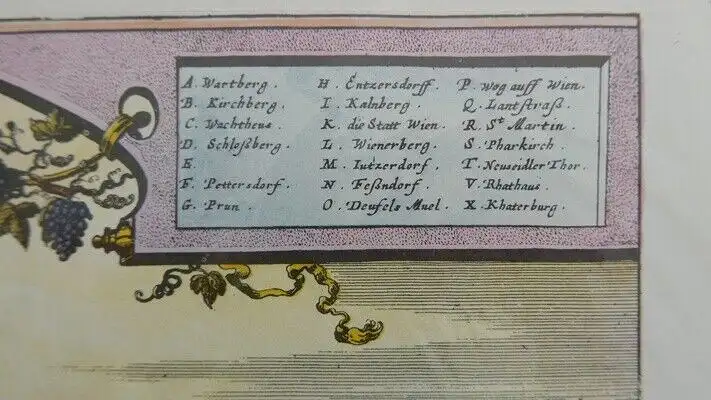 A. Wartberg.
B. Kirchberg.
C. Wachtheus.
D. Schloßberg.
E.
F. Pettersdorf.
G. Prun.
H. Entzersdorff.
I. Kalnberg.
K. die Statt Wien.
L. Wienerberg.
M. Iutzerdorf.
N. Feßndorf.
O. Deufels Muel.
P. weg auff Wien.
Q. Lantstraß.
R. St Martin.
S. Pharkirch.
T. Neuseidler Thor.
V. Rhathaus.
X. Khaterburg.